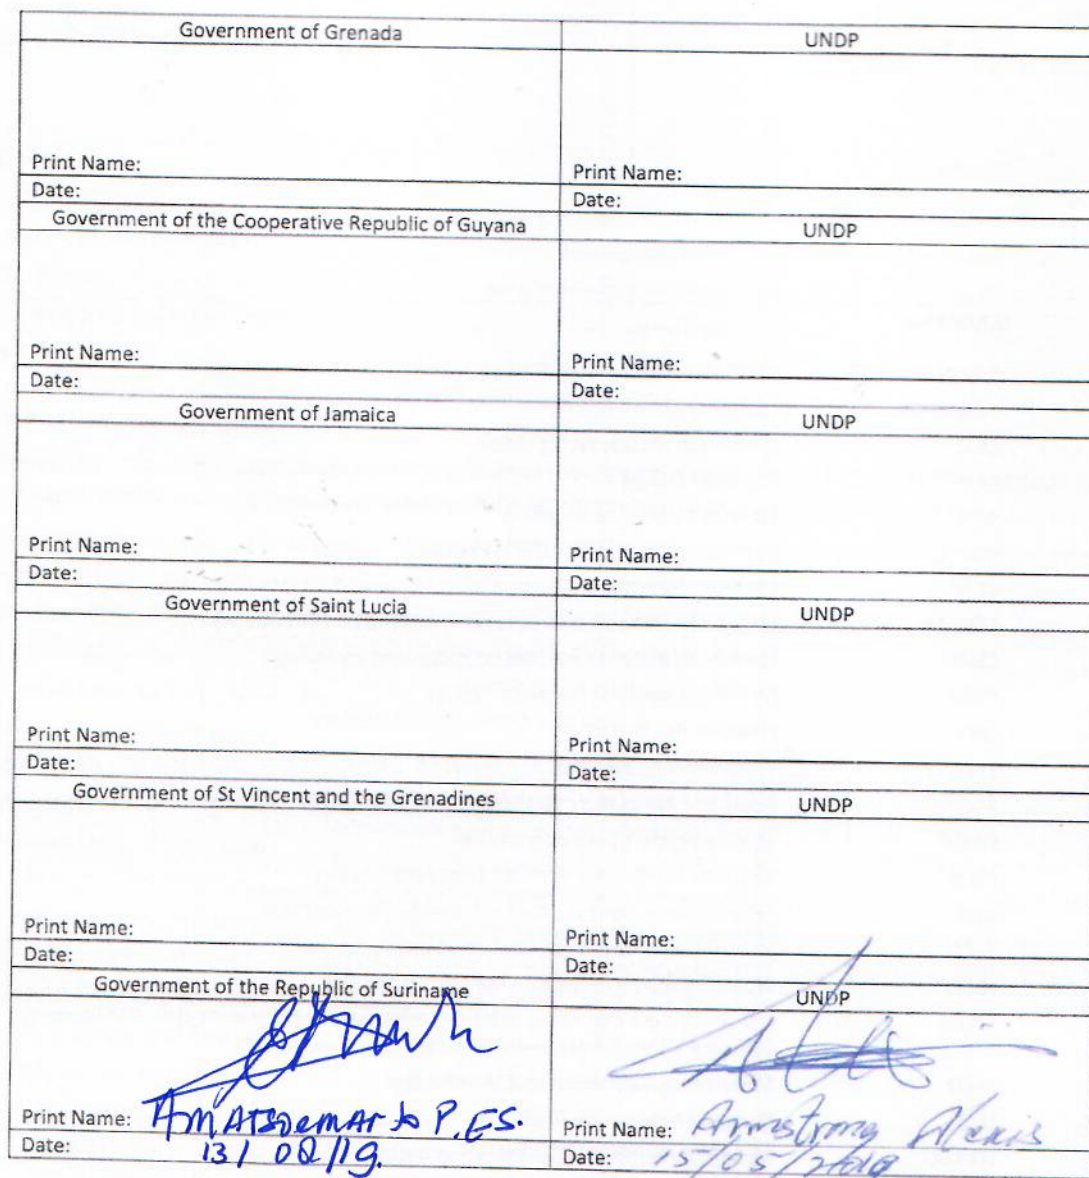 Government of Grenada UNDP
Print Name: Print Name:
Date: Date:
Government of the Cooperative Republic of Guyana UNDP
Print Name: Print Name:
Date: Date:
Government of Jamaica UNDP
Print Name: Print Name:
Date: Date:
Government of Saint Lucia UNDP
Print Name: Print Name:
Date: Date:
Government of St Vincent and the Grenadines UNDP
Print Name: Print Name:
Date: Date:
Government of the Republic of Suriname UNDP
Print Name: P.ES. Print Name: Armstrong Alexis
Date: Date: 15/05/